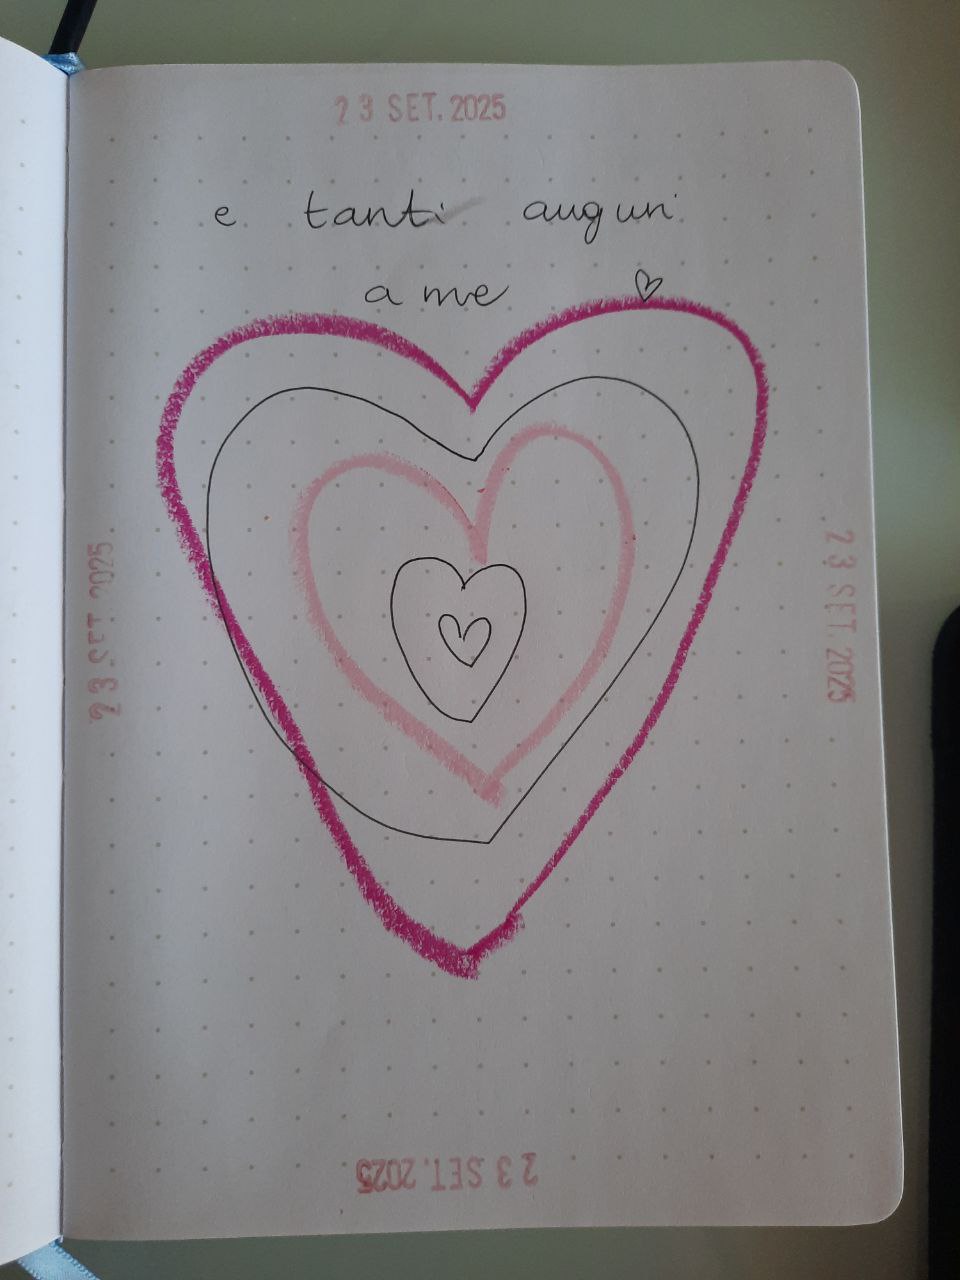 23 SET. 2025
e tanti auguri
a me
23 SET. 2025
23 SET. 2025
23 SET. 2025